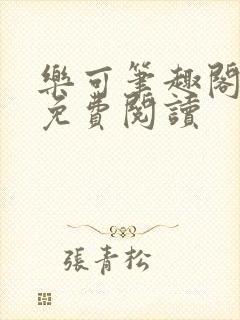 樂可筆趣閣
免費閱讀
張青松